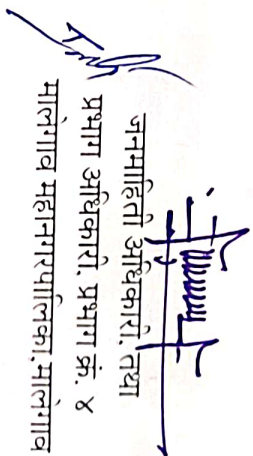 जनमाहिती अधिकारी, तथा
प्रभाग अधिकारी, प्रभाग क्रं. ४
मालेगाव महानगरपालिका, मालेगाव